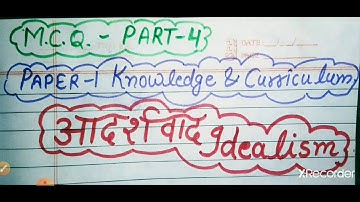 M.C.Q. - PART-4
DATE: __/__/__
PAPER-I Knowledge & Curriculum
आदर्शवाद Idealism
XRecorder